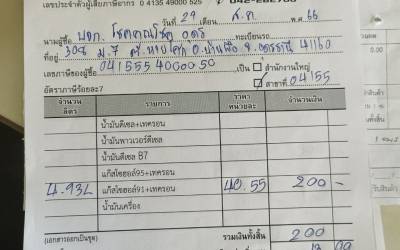 เลขประจำตัวผู้เสียภาษีอากร 0 4135 49000 525
วันที่ 29 เดือน ส.ค. พ.ศ. 66
นามผู้ซื้อ หจก. โชคคูณโชค อุดร ทะเบียนรถ
ที่อยู่ 308 ม.7 ต. อ.บ้านผือ จ.อุดรธานี 41160
เลขภาษีของผู้ซื้อ 041555 4000050 เป็น สำนักงานใหญ่
อัตราภาษีร้อยละ7 สาขาที่ 04155
จำนวนลิตร รายการ ราคาหน่วยละ จำนวนเงิน
น้ำมันดีเซล+เทครอน
น้ำมันพาวเวอร์ดีเซล
น้ำมันดีเซล B7
แก๊สโซฮอล์95+เทครอน
4.93L แก๊สโซฮอล์91+เทครอน 40.55 200 -
น้ำมันเครื่อง
(เอกสารออกเป็นชุด) รวมเงินทั้งสิ้น 200